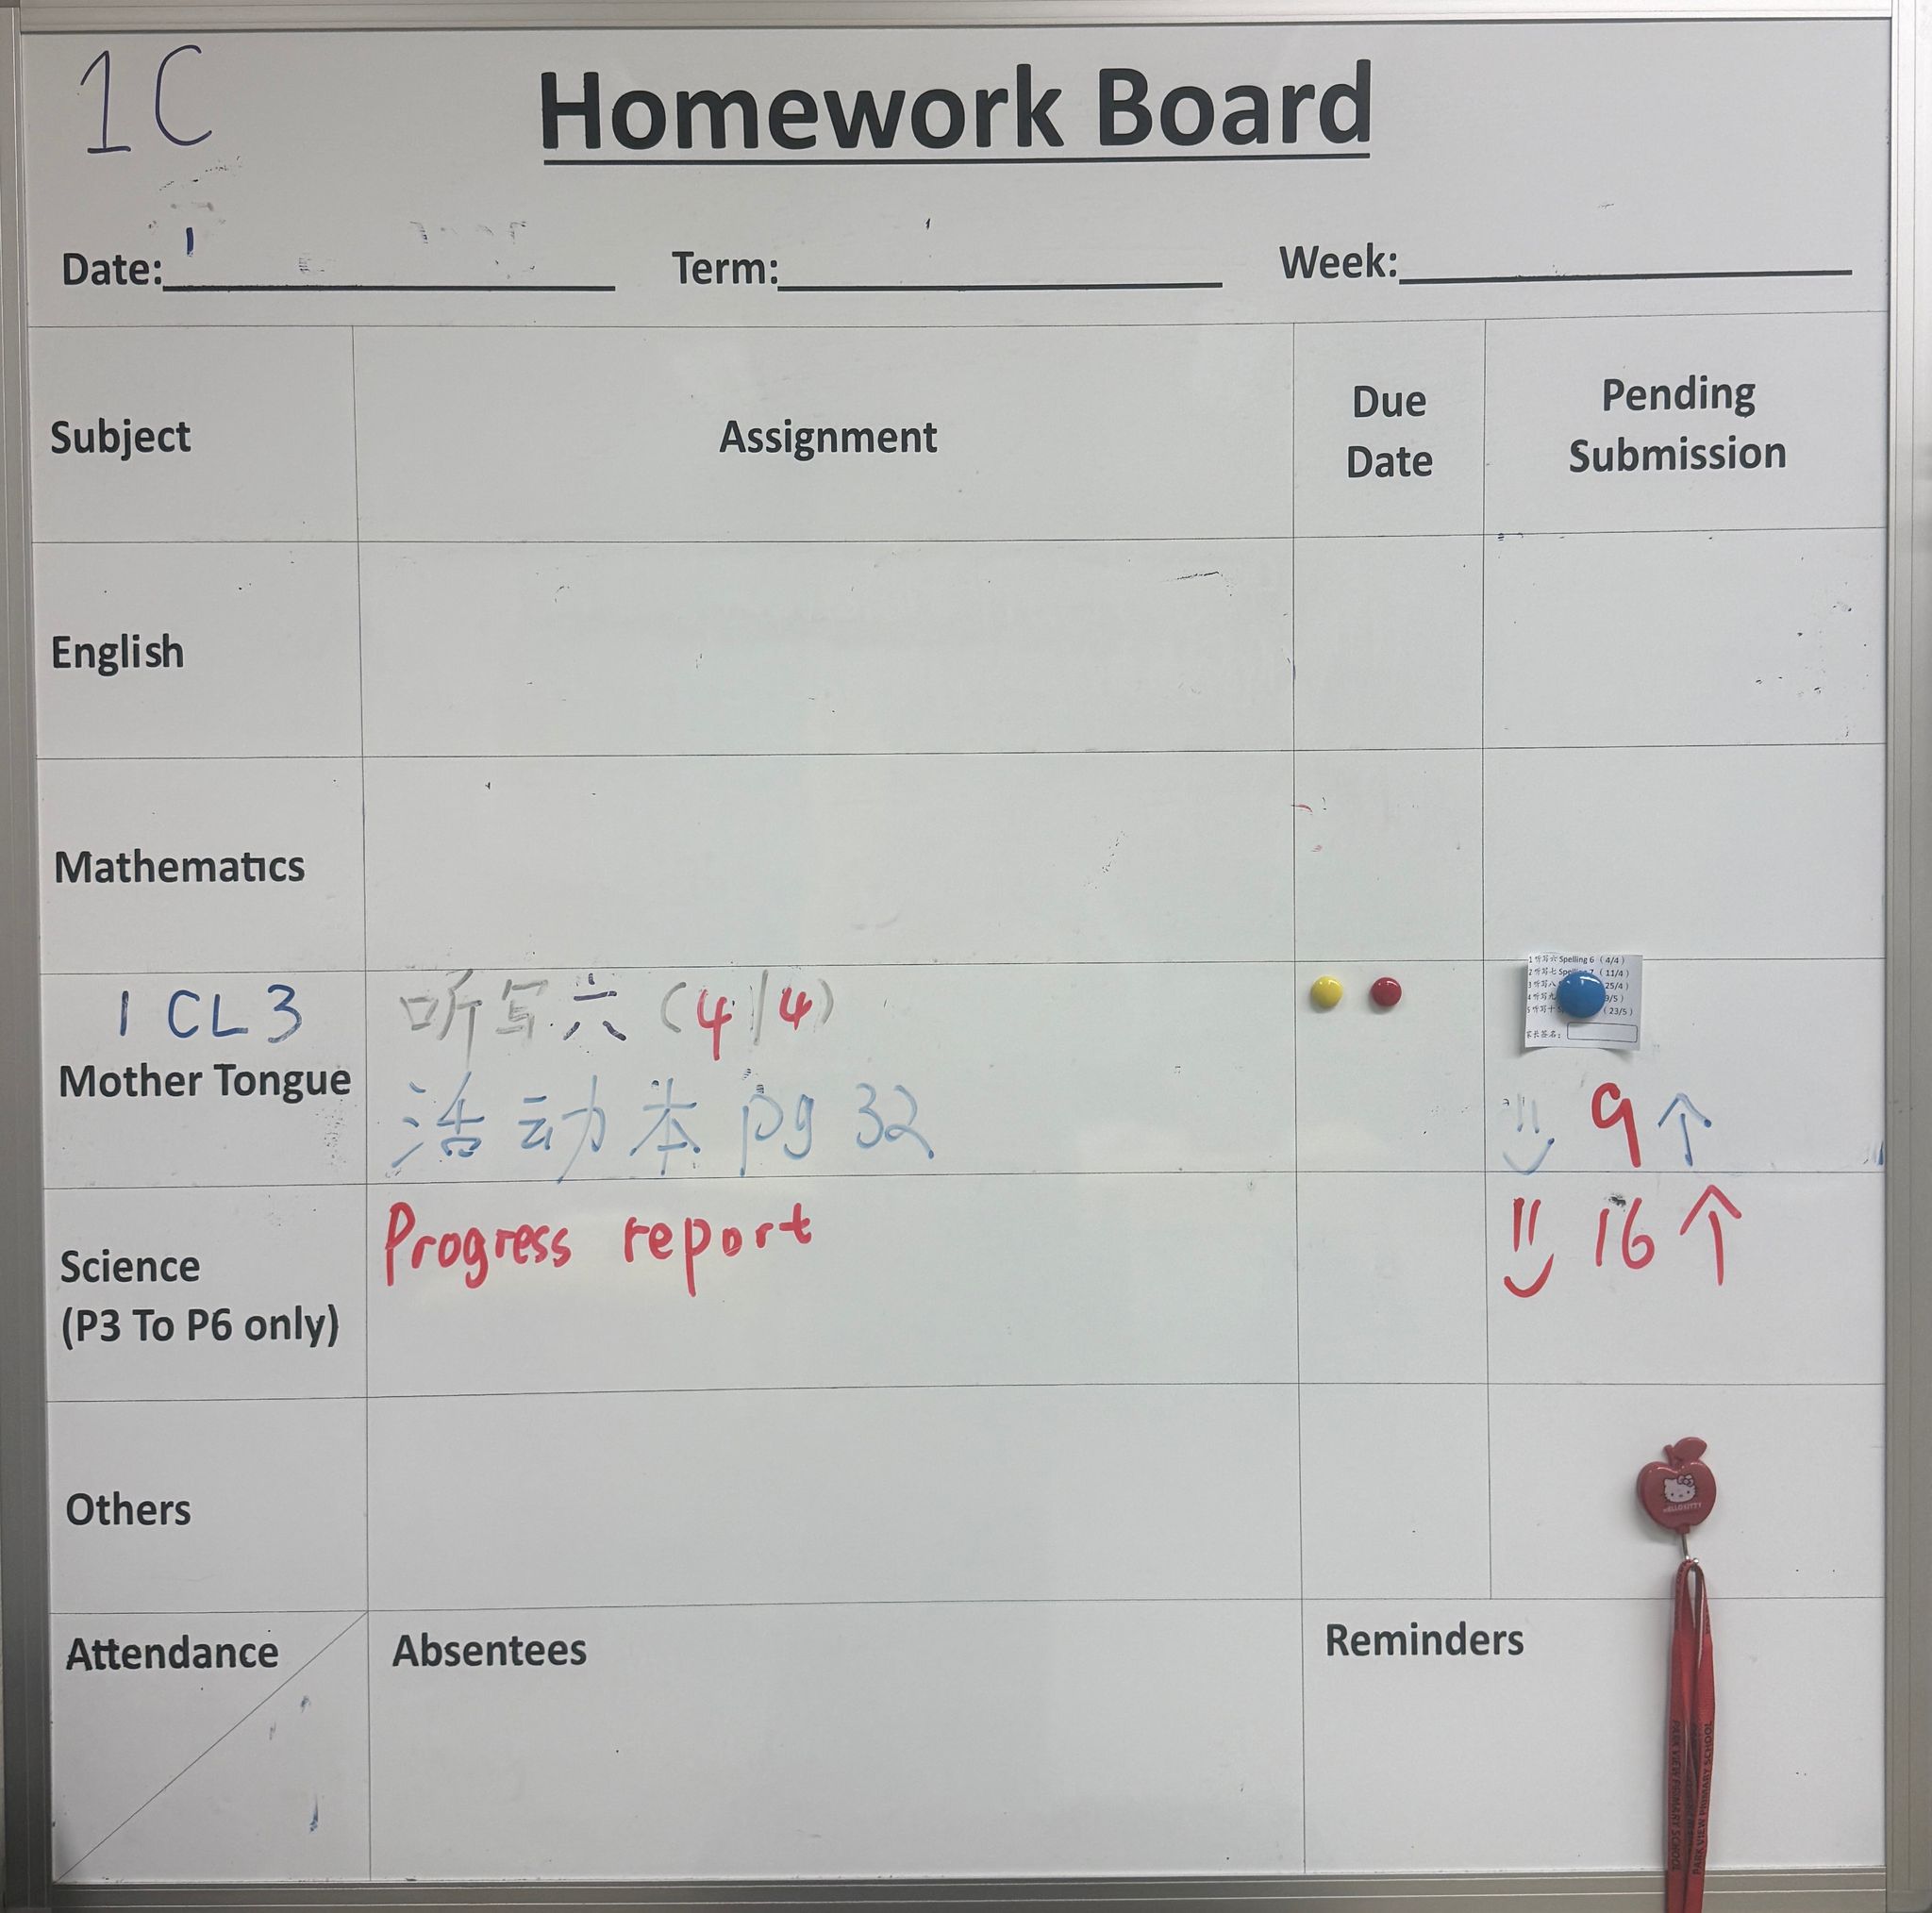 1C
Homework Board
Date:
Term:
Week:
Subject
Assignment
Due
Date
Pending
Submission
English
Mathematics
1 CL 3
Mother Tongue
听写六 (4/4)
活动本 pg 32
1 听写六 Spelling 6 ( 4/4 )
2 听写七 ( 11/4 )
3 听写八 25/4 )
4 听写九 9/5 )
5 听写十 ( 23/5 )
家长签名：
9↑
Science
(P3 To P6 only)
Progress report
16↑
Others
HELLO KITTY
Attendance
Absentees
Reminders
PARK VIEW PRIMARY SCHOOL
PARK VIEW PRIMARY SCHOOL